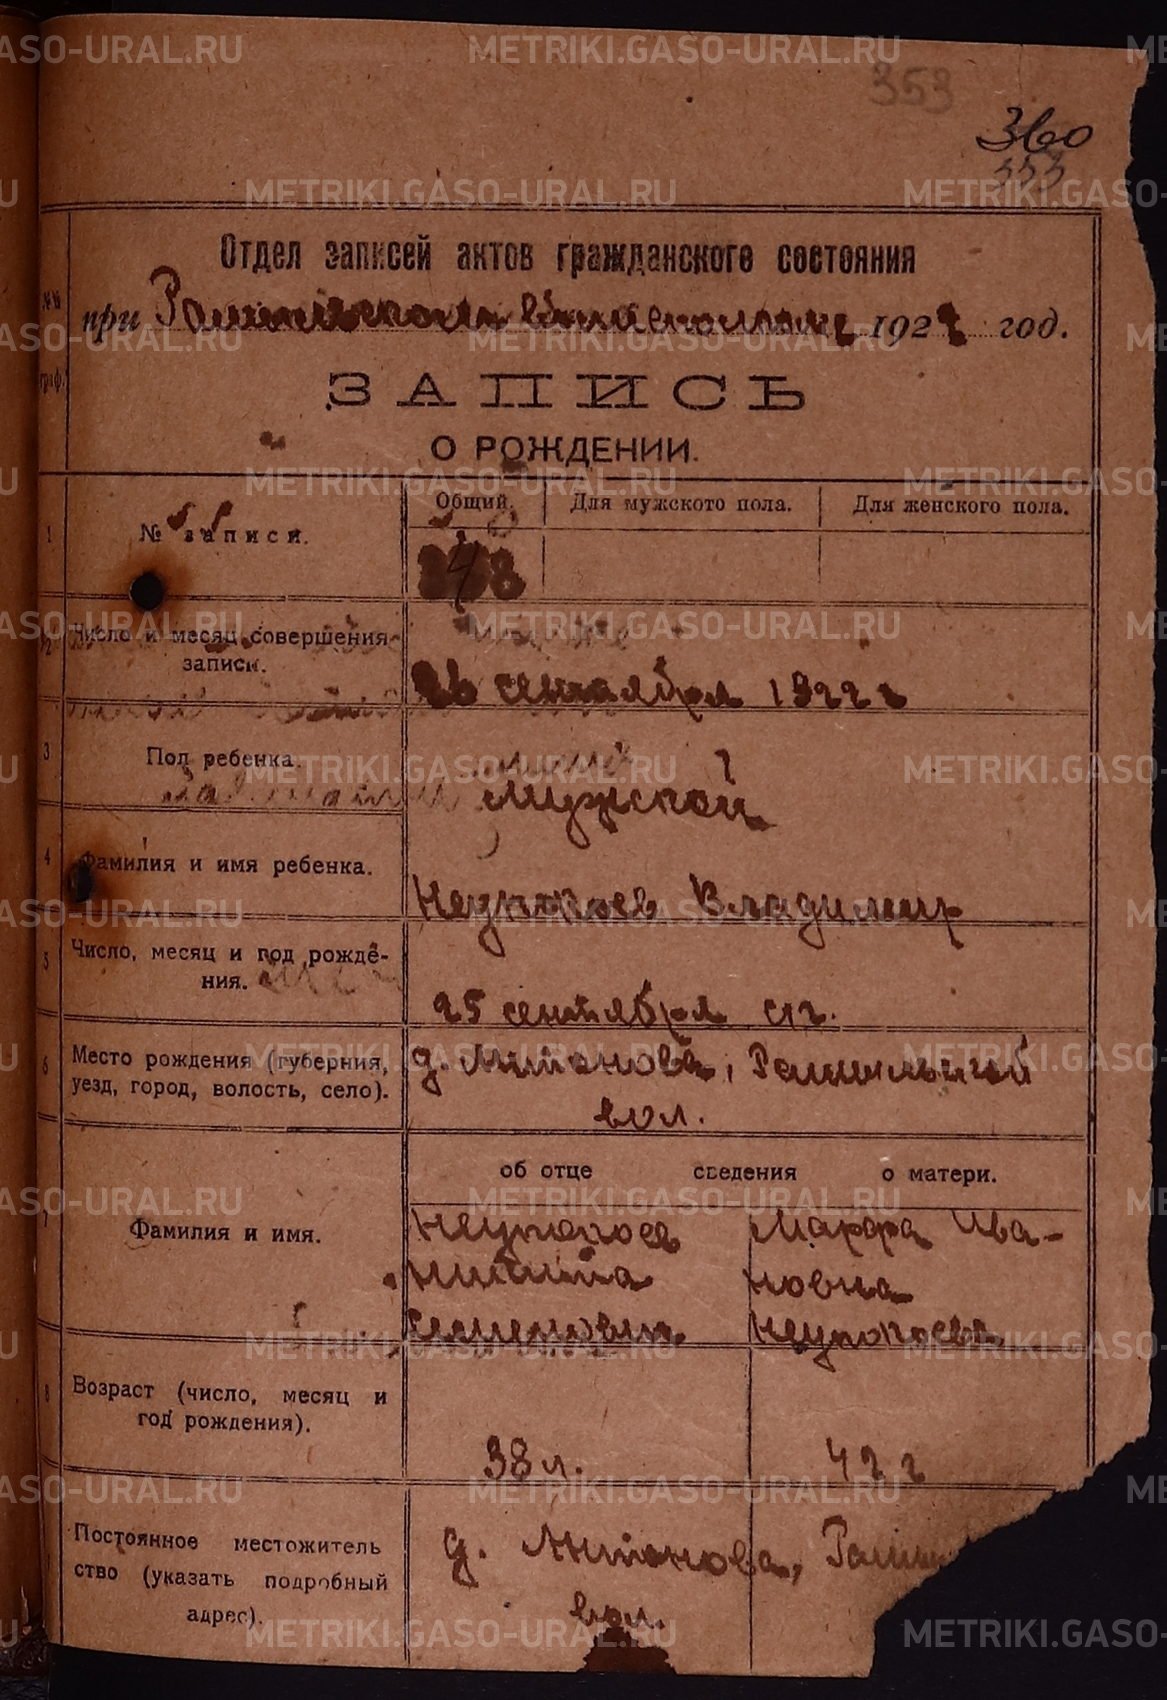 353
360
353
Отдел записей актов гражданского состояния
при 1922 год.
№№
граф.
ЗАПИСЬ
О РОЖДЕНИИ.
Общий. Для мужского пола. Для женского пола.
1 № записи.
348
2 Число и месяц совершения
записи.
26 сентября 1922 г
3 Пол ребенка.
Мужской
4 Фамилия и имя ребенка.
Неупокоев Владимир
5 Число, месяц и год рожде-
ния.
25 сентября с/г.
6 Место рождения (губерния,
уезд, город, волость, село).
д. Антонова,
вол.
об отце сведения о матери.
7 Фамилия и имя.
Неупокоев Марфа Ива-
Никита новна
Семенович Неупокоева
8 Возраст (число, месяц и
год рождения).
38 л. 42 г
Постоянное местожитель
ство (указать подробный
адрес).
д. Антонова,
вол.
METRIKI.GASO-URAL.RU